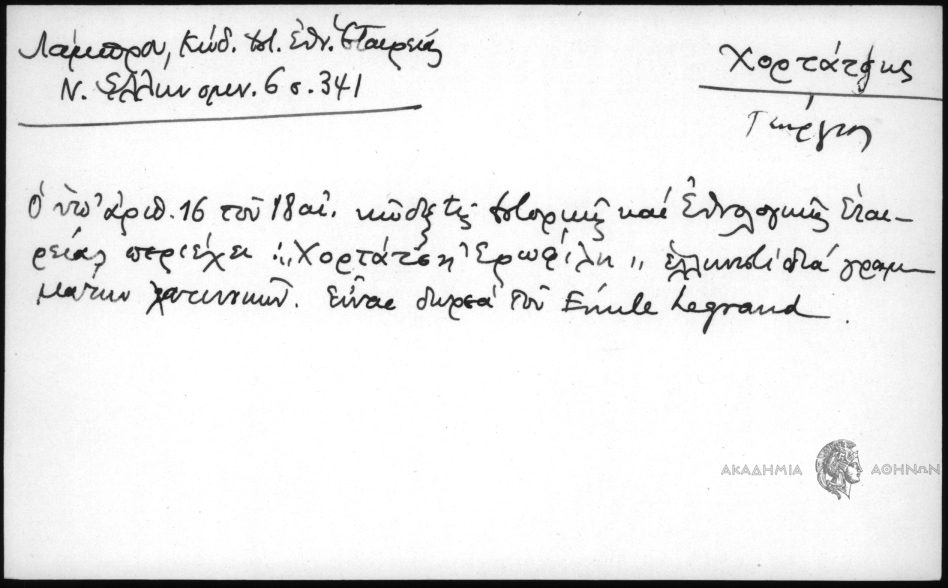 Λάμπρου, Κώδ. Ιστ. Ἐθν. Ἑταιρείας
Ν. Ἑλληνομν. 6 σ. 341
Χορτάτσης
Γεώργιος
Ὁ ὑπ' ἀριθ. 16 τοῦ 18 αἰ. κῶδιξ τῆς Ἱστορικῆς καί Ἐθνολογικῆς Ἑται-
ρείας περιέχει : „Χορτάτση Ἐρωφίλη" ἑλληνιστί διά γραμ-
μάτων λατινικῶν. Εἶναι δωρεά τοῦ Emile Legrand.
ΑΚΑΔΗΜΙΑ ΑΘΗΝΩΝ